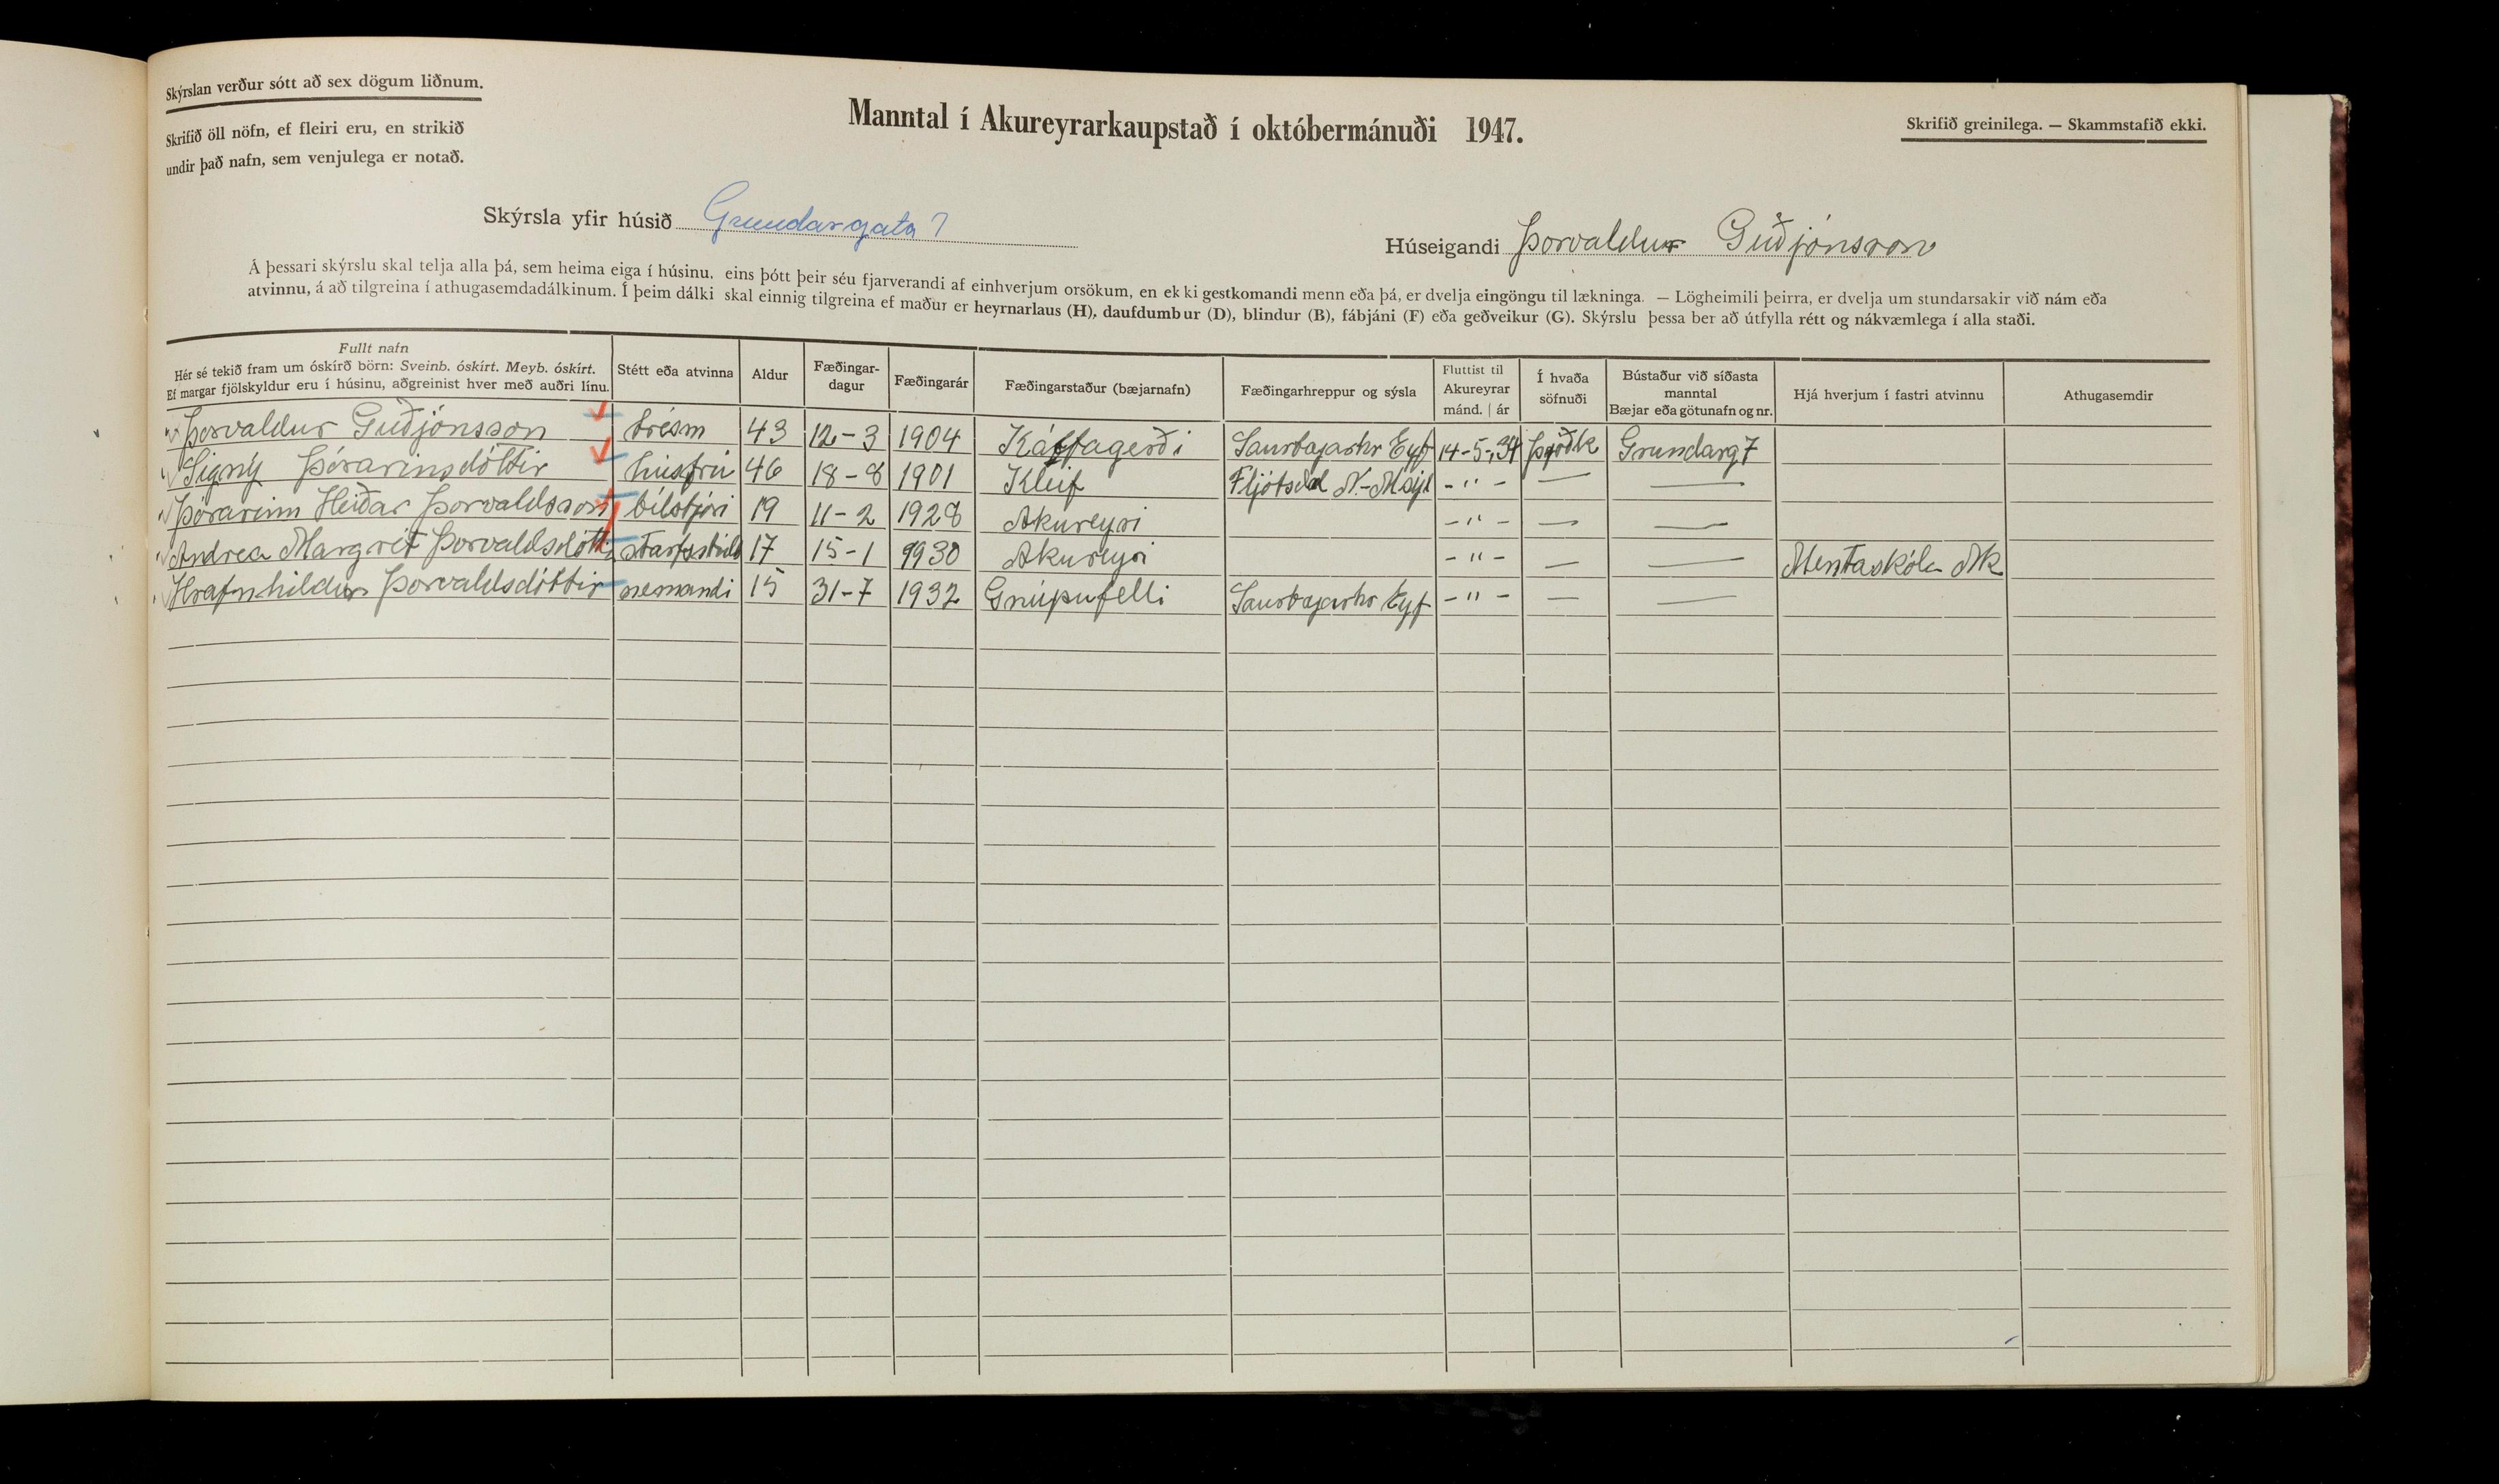 Skýrslan verður sótt að sex dögum liðnum.
Skrifið öll nöfn, ef fleiri eru, en strikið
undir það nafn, sem venjulega er notað.
Manntal í Akureyrarkaupstað í októbermánuði 1947.
Skrifið greinilega. — Skammstafið ekki.
Skýrsla yfir húsið Grundargata 7
Húseigandi Þorvaldur Guðjónsson
Á þessari skýrslu skal telja alla þá, sem heima eiga í húsinu, eins þótt þeir séu fjarverandi af einhverjum orsökum, en ekki gestkomandi menn eða þá, er dvelja eingöngu til lækninga. — Lögheimili þeirra, er dvelja um stundarsakir við nám eða
atvinnu, á að tilgreina í athugasemdadálkinum. Í þeim dálki skal einnig tilgreina ef maður er heyrnarlaus (H), daufdumbur (D), blindur (B), fábjáni (F) eða geðveikur (G). Skýrslu þessa ber að útfylla rétt og nákvæmlega í alla staði.
Fullt nafn
Hér sé tekið fram um óskírð börn: Sveinb. óskírt. Meyb. óskírt.
Ef margar fjölskyldur eru í húsinu, aðgreinist hver með auðri línu.
Stétt eða atvinna
Aldur
Fæðingar-
dagur
Fæðingarár
Fæðingarstaður (bæjarnafn)
Fæðingarhreppur og sýsla
Fluttist til
Akureyrar
mánd. | ár
Í hvaða
söfnuði
Bústaður við síðasta
manntal
Bæjar eða götunafn og nr.
Hjá hverjum í fastri atvinnu
Athugasemdir
Þorvaldur Guðjónsson trésm 43 12-3 1904 Káffagerði Saurbæjarhr Eyf 14-5-34 Þjóðk Grundarg 7
Signý Þórarinsdóttir húsfrú 46 18-8 1901 Kleif Fljótsdal N-Músýs - " - — —
Þórarinn Heiðar Þorvaldsson bílstjóri 19 11-2 1928 Akureyri - " - — —
Andrea Margrét Þorvaldsdóttir starfsstúlk 17 15-1 1930 Akureyri - " - — — Mentaskóla Ak
Hrafnhildur Þorvaldsdóttir nemandi 15 31-7 1932 Gnúpufelli Saurbæjarhr Eyf - " - — —